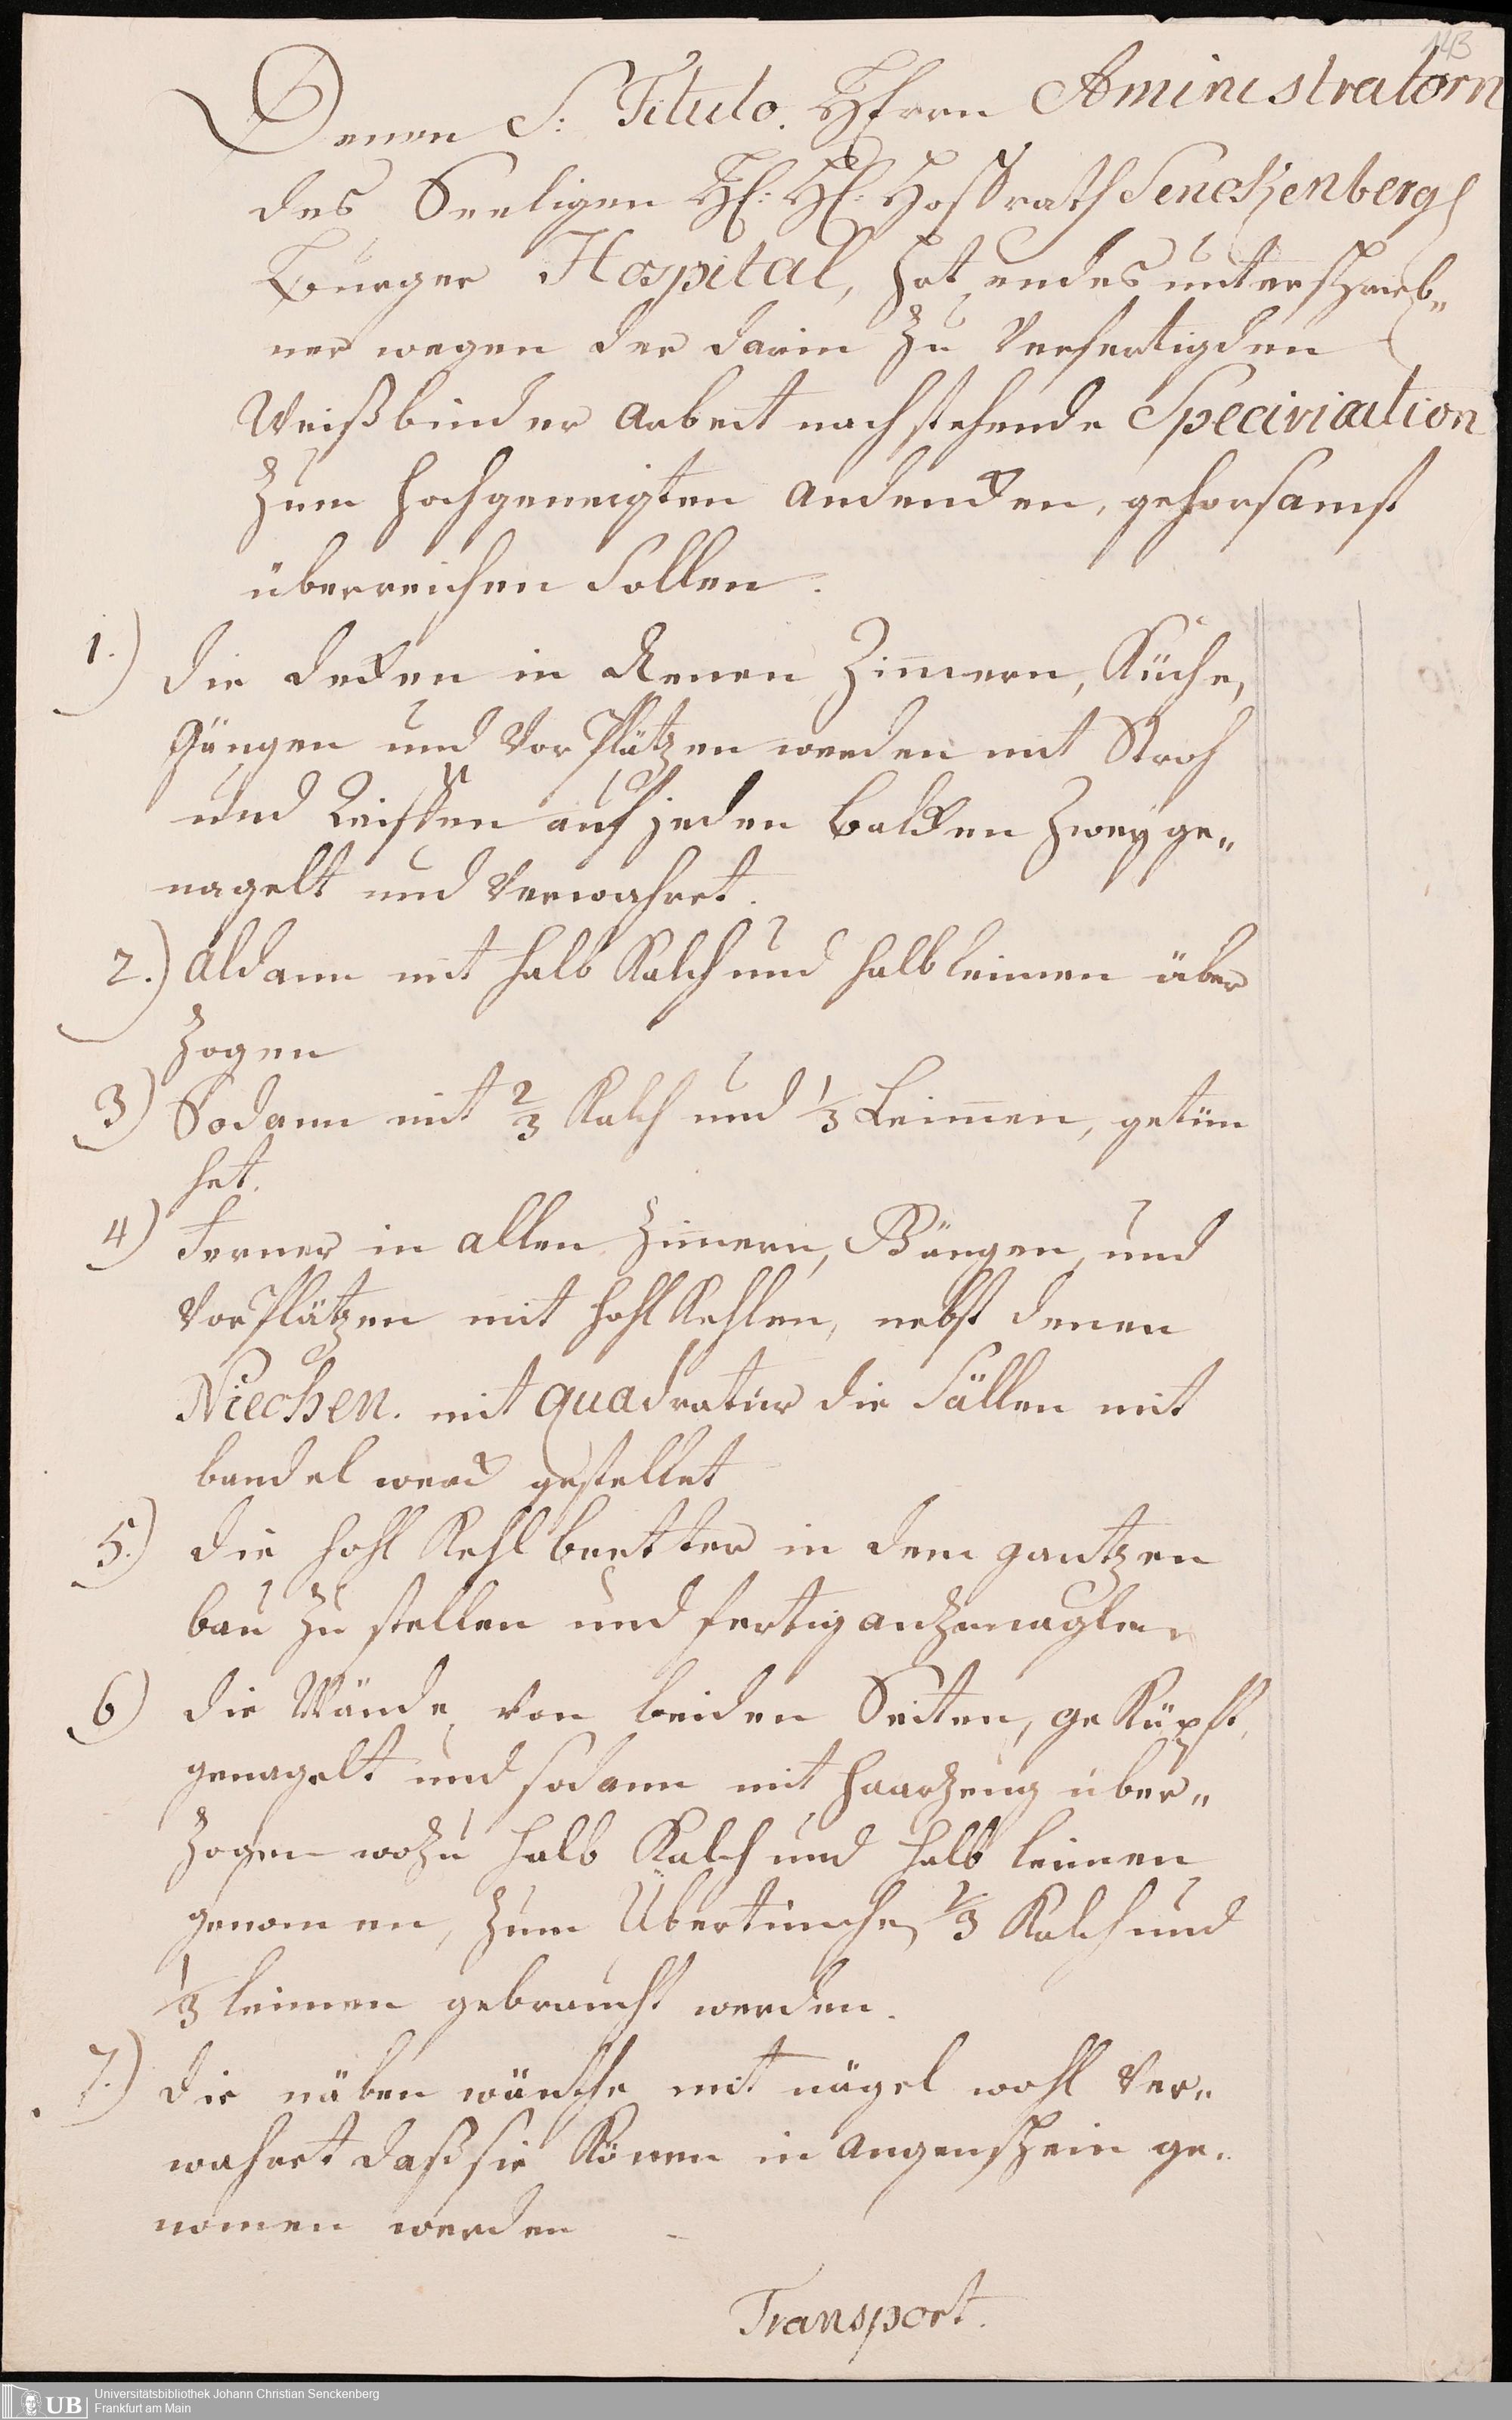 143
Denen S: Titulo. Hherrn Aministratorn
des Seeligen H: H: Hoffrath Senckenbergs
Burger Hospital, hat endes unterschrieb„
ner wegen der darin zu Verfertigden
Weißbinder arbeit nachstehende Speciviation
zum hochgeneigten andencken, gehorsamst
überreichen sollen.
1.) die decken in denen Zimern, Küche,
Gängen und VorPlätzen werden mit Stroh
und Leisten auf jeden balcken zwey ge„
nagelt und Verwahret.
2.) aldann mit halb Kalch und halb leimen über
zogen
3) Sodann mit 2/3 Kalch und 1/3 Leimen, getün
het.
4) Ferner in allen Zimern, Gängen, und
VorPlätzen mit hohl Kehlen, nebst denen
Niechen. mit quadratur die Fällen mit
bandel werck gestellet
5.) die hohl Kehl bretter in dem gantzen
bau zu stellen und fertig anzunaglen
6) die Wände von beiden Seiten, geküpft,
genagelt und sodann mit haarzeug über„
zogen wozu halb Kalch und halb leimen
genomen, zum Übertünche 2/3 Kalch und
1/3 leimen gebraucht werden.
7.) die näben wänthe mit nägel wohl Ver„
wahret daß sie Könen in augenschein ge„
nomen werden
Transport.
UB Universitätsbibliothek Johann Christian Senckenberg
Frankfurt am Main